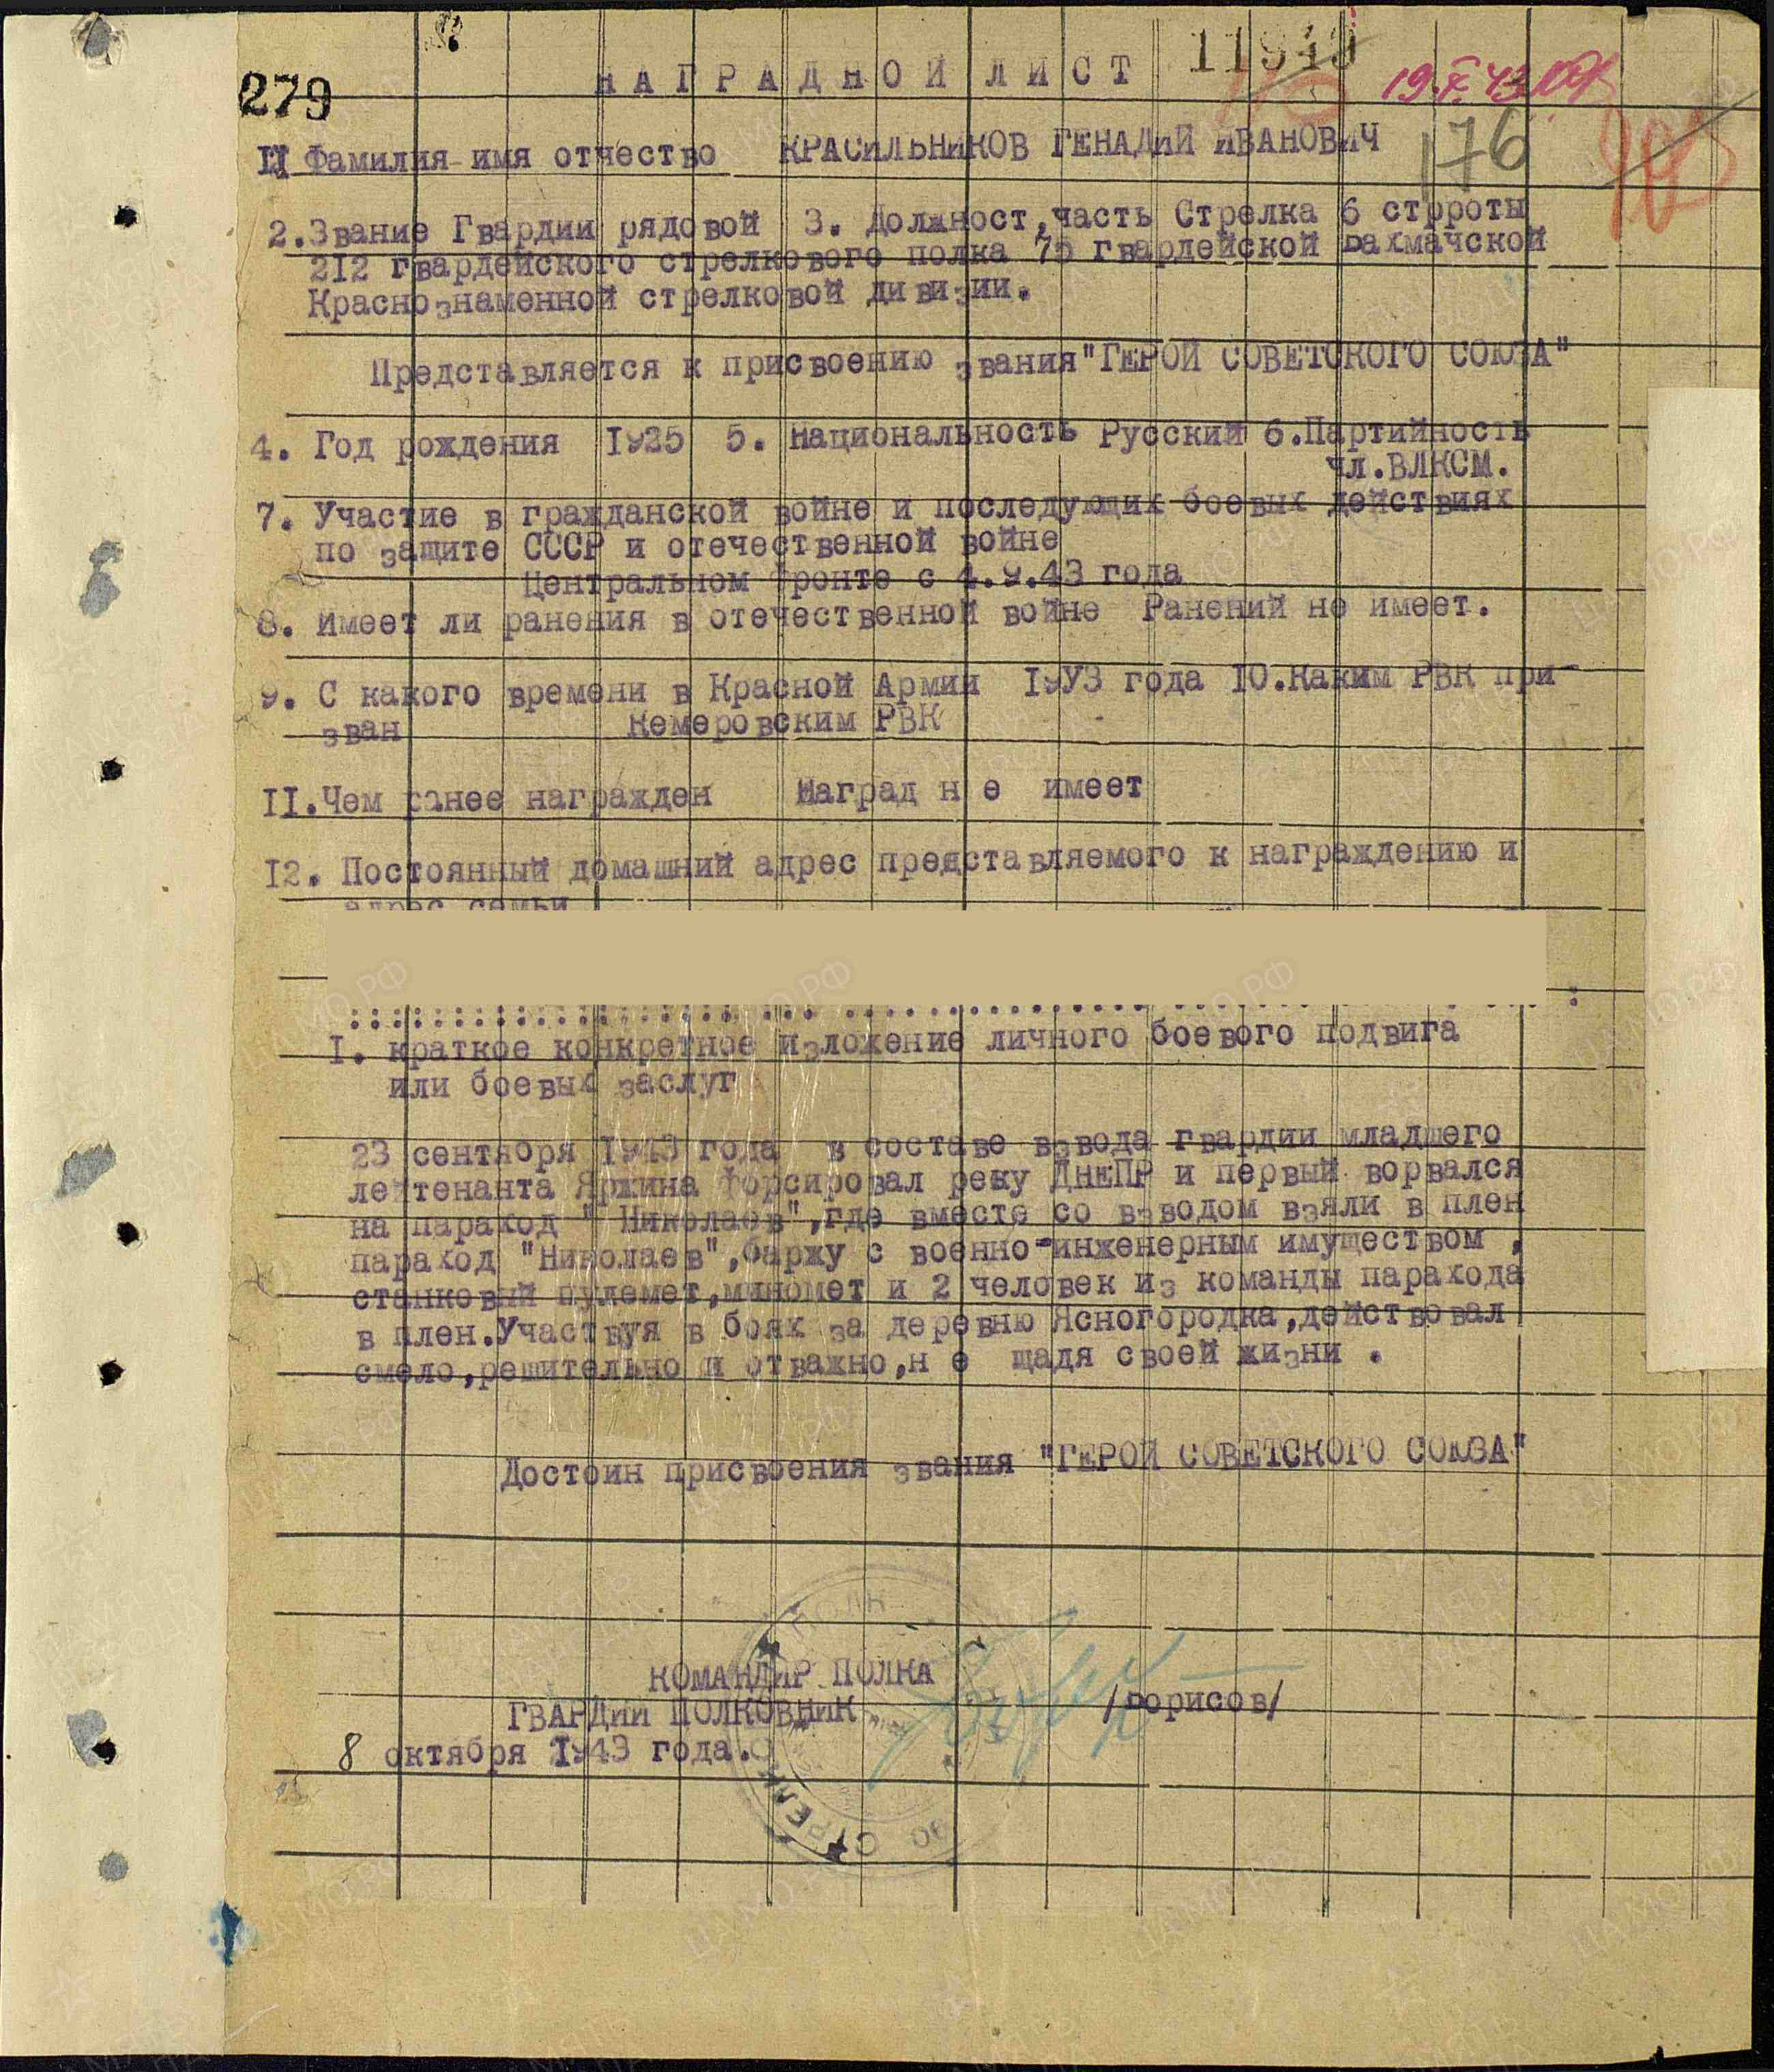 279
НАГРАДНОЙ ЛИСТ
11949
19.X.43
176
I Фамилия имя отчество КРАСИЛЬНИКОВ ГЕНАДИЙ ИВАНОВИЧ
2.Звание Гвардии рядовой 3. Должност,часть Стрелка 6 стрроты
212 гвардейского стрелкового полка 75 гвардейской Бахмачской
Краснознаменной стрелковой дивизии.
Представляется к присвоению звания"ГЕРОЙ СОВЕТСКОГО СОЮЗА"
4. Год рождения 1925 5. Национальность Русский 6.Партийность
чл.ВЛКСМ.
7. Участие в гражданской войне и последующих боевых действиях
по защите СССР и отечественной войне
Центральном фронте с 4.9.43 года
8. Имеет ли ранения в отечественной войне Ранений не имеет.
9. С какого времени в Красной Армии 19У3 года 10.Каким РВК при-
зван Кемеровским РВК
II.Чем ранее награжден Наград н е имеет
12. Постоянный домашний адрес представляемого к награждению и
адрес семьи
I. краткое конкретное изложение личного боевого подвига
или боевых заслуг
23 сентября 1943 года в составе взвода гвардии младшего
лейтенанта Яржина форсировал реку ДНЕПР и первый ворвался
на параход " Николаев",где вместе со взводом взяли в плен
параход "Николаев",баржу с военно-инженерным имуществом ,
станковый пулемет,миномет и 2 человек из команды парахода
в плен.Участвуя в боях за деревню Ясногородка,действовал
смело,решительно и отважно,н е щадя своей жизни .
Достоин присвоения звания "ГЕРОЙ СОВЕТСКОГО СОЮЗА"
КОМАНДИР ПОЛКА
ГВАРДИИ ПОЛКОВНИК /Борисов/
8 октября 1943 года.